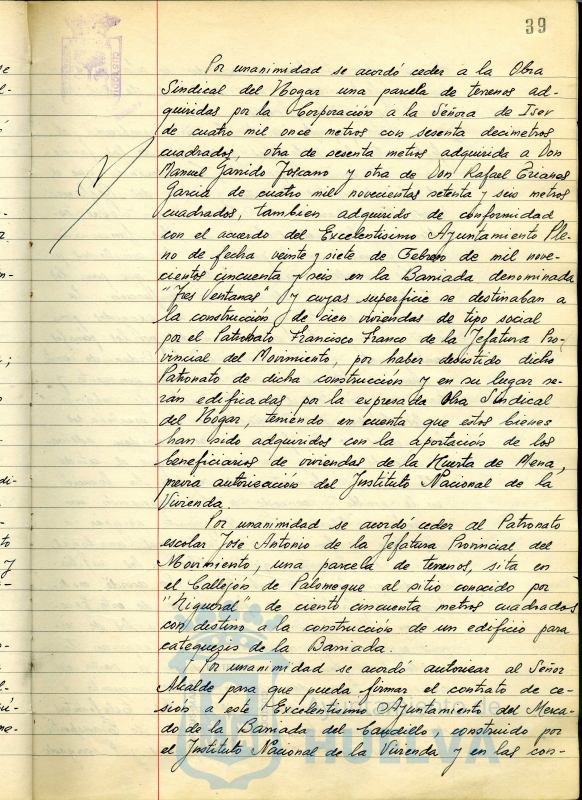 39
Por unanimidad se acordó ceder a la Obra
Sindical del Hogar una parcela de terrenos ad-
quiridas por la Corporación a la Señora de Iser
de cuatro mil once metros con sesenta decimetros
cuadrados, otra de sesenta metros adquirida a Don
Manuel Garrido Toscano y otra de Don Rafael
Garcia de cuatro mil novecientos setenta y seis metros
cuadrados, tambien adquirido de conformidad
con el acuerdo del Excelentisimo Ayuntamiento Ple-
no de fecha veinte y siete de Febrero de mil nove-
cientos cincuenta y seis en la Barriada denominada
"Tres Ventanas" y cuyas superficie se destinaban a
la construcción de cien viviendas de tipo social
por el Patronato Francisco Franco de la Jefatura Pro-
vincial del Movimiento, por haber desistido dicho
Patronato de dicha construcción y en su lugar se-
rán edificadas por la expresada Obra Sindical
del Hogar, teniendo en cuenta que estos bienes
han sido adquiridos con la aportación de los
beneficiarios de viviendas de la Huerta de Mena,
previa autorización del Instituto Nacional de la
Vivienda.
Por unanimidad se acordó ceder al Patronato
escolar José Antonio de la Jefatura Provincial del
Movimiento, una parcela de terrenos, sita en
el Callejón de Palomeque al sitio conocido por
"Higueral" de ciento cincuenta metros cuadrados
con destino a la construcción de un edificio para
catequesis de la Barriada.
Por unanimidad se acordó autorizar al Señor
Alcalde para que pueda firmar el contrato de ce-
sión a este Excelentisimo Ayuntamiento del Merca-
do de la Barriada del Caudillo, construido por
el Instituto Nacional de la Vivienda y en las con-